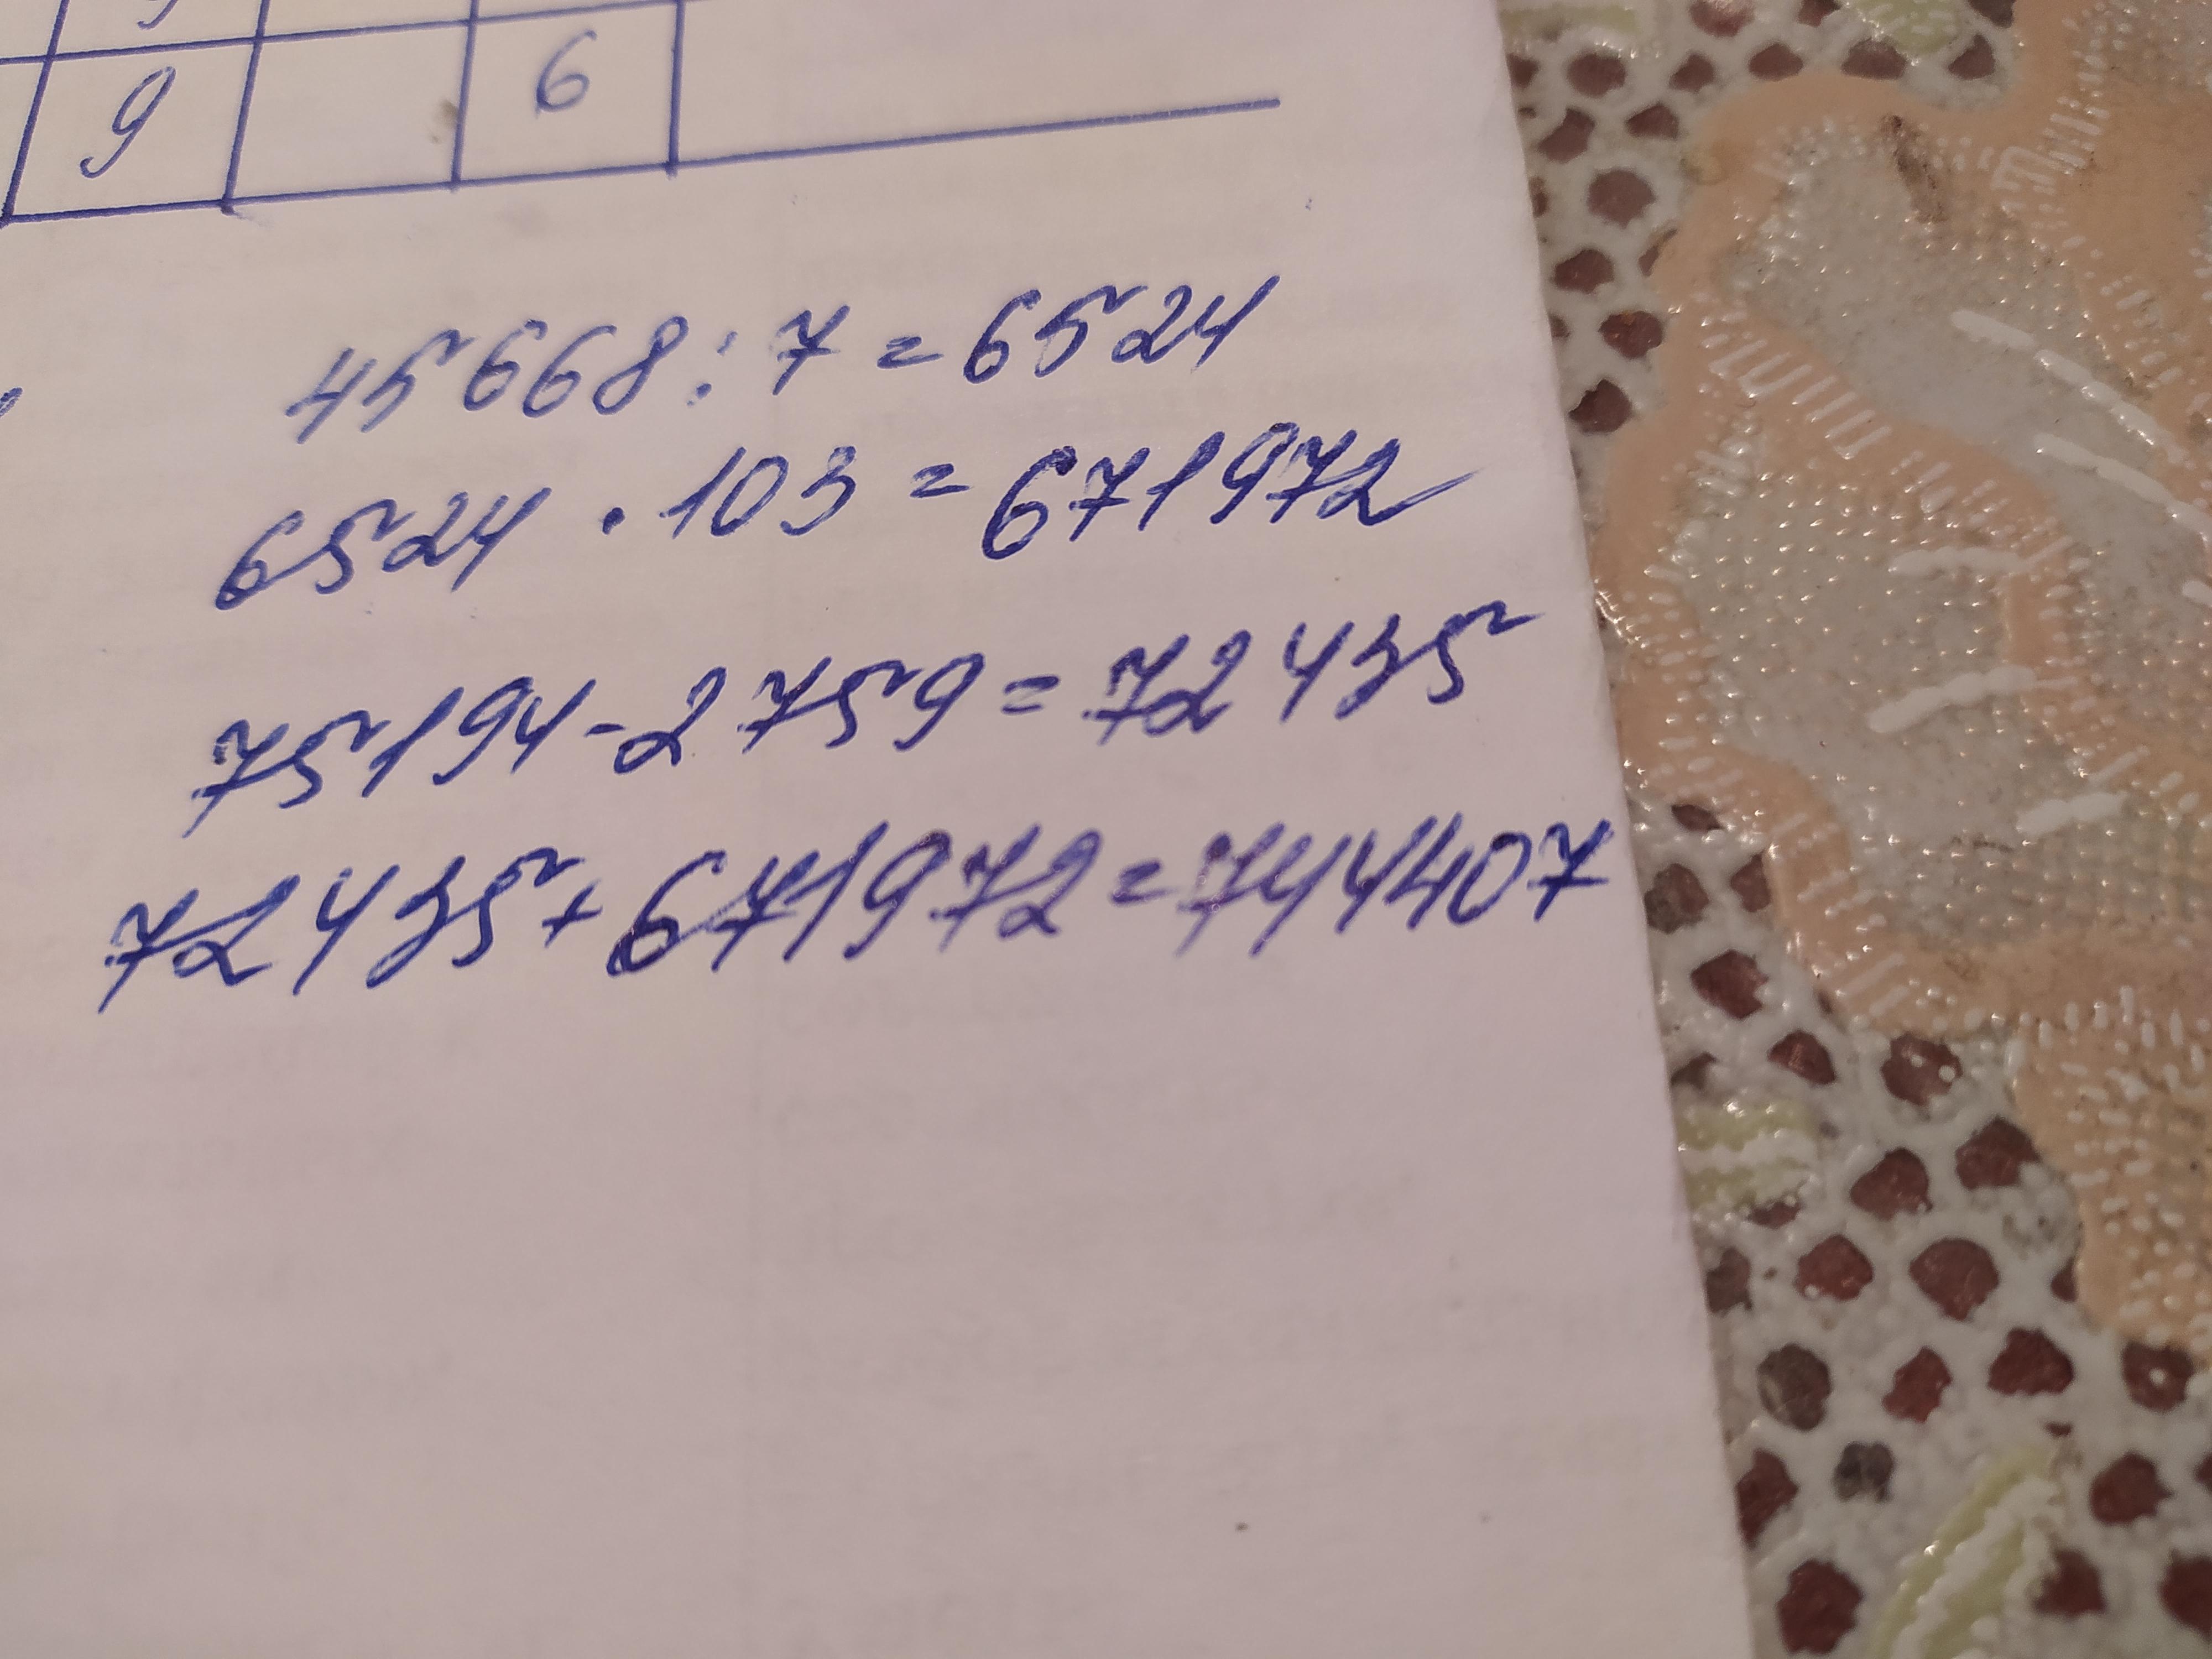 9 6
45668:7=6524
6524·103=671972
75194-2759=72435
72435+671972=744407